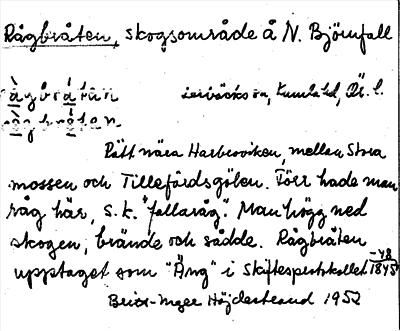 Rågbråten, skogsområde å N. Björnfall
Kumla hd, Ög. l.
Rätt nära Harbroviken, mellan Stora
mossen och Tillefördsgölen. Förr hade man
råg här, s. k. "fallaråg". Man högg ned
skogen, brände och sådde. Rågbråten
upptaget som "Äng" i Skiftesprotokollet 1845-48
Britt-Inger Höjdestrand 1952